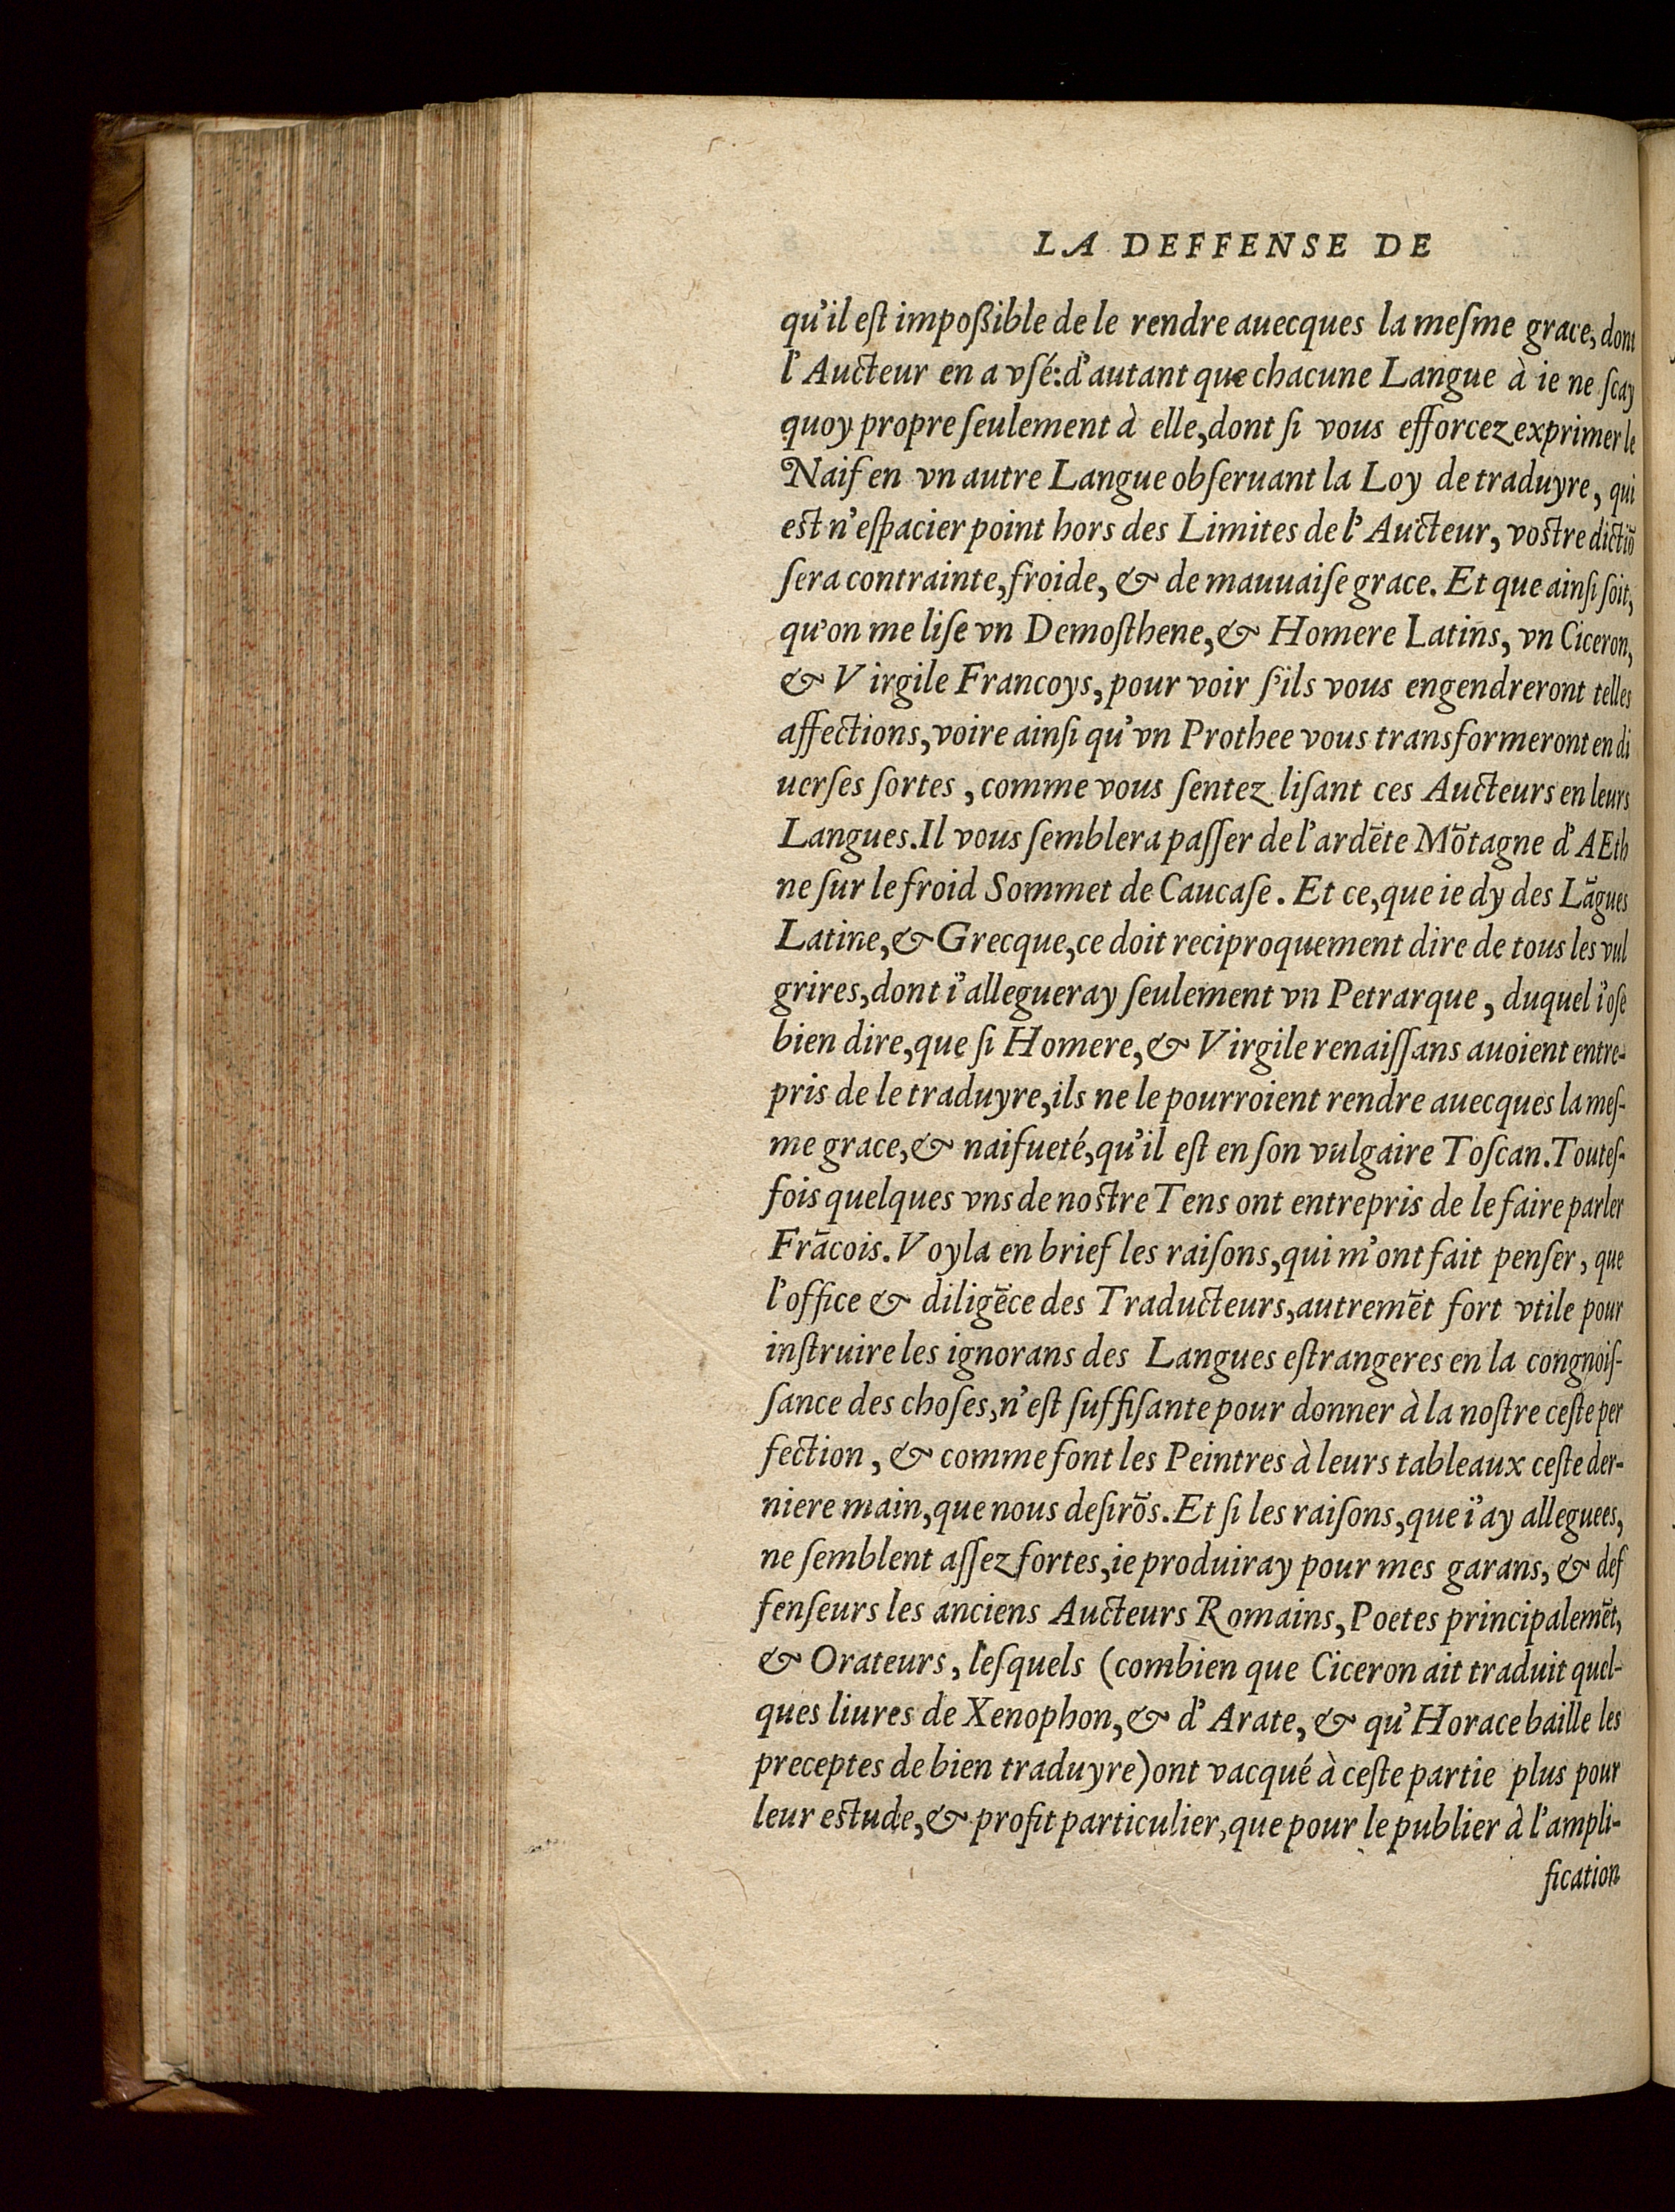 LA DEFFENSE DE
qu'il eſt impoßible de le rendre auecques la meſme grace, dont
l'Aucteur en a vſé: d'autant que chacune Langue à ie ne ſcay
quoy propre ſeulement à elle, dont ſi vous efforcez exprimer le
Naif en vn autre Langue obſeruant la Loy de traduyre, qui
est n'eſpacier point hors des Limites de l'Aucteur, vostre dictiõ
ſera contrainte, froide, & de mauuaiſe grace. Et que ainſi ſoit,
qu'on me liſe vn Demoſthene, & Homere Latins, vn Ciceron,
& Virgile Francoys, pour voir ſ'ils vous engendreront telles
affections, voire ainſi qu'vn Prothee vous transformeront en di
uerſes ſortes, comme vous ſentez liſant ces Aucteurs en leurs
Langues. Il vous ſemblera paſſer de l'ardẽte Mõtagne d'AEth
ne ſur le froid Sommet de Caucaſe. Et ce, que ie dy des Lãgues
Latine, & Grecque, ce doit reciproquement dire de tous les vul
grires, dont i'allegueray ſeulement vn Petrarque, duquel i'oſe
bien dire, que ſi Homere, & Virgile renaiſſans auoient entre-
pris de le traduyre, ils ne le pourroient rendre auecques la meſ-
me grace, & naifueté, qu'il eſt en ſon vulgaire Toſcan. Touteſ-
fois quelques vns de nostre Tens ont entrepris de le faire parler
Frãcois. Voyla en brief les raiſons, qui m'ont fait penſer, que
l'office & diligẽce des Traducteurs, autremẽt fort vtile pour
inſtruire les ignorans des Langues eſtrangeres en la congnoiſ-
ſance des choſes, n'eſt ſuffiſante pour donner à la noſtre ceſte per
fection, & comme font les Peintres à leurs tableaux ceſte der-
niere main, que nous deſirõs. Et ſi les raiſons, que i'ay alleguees,
ne ſemblent aſſez fortes, ie produiray pour mes garans, & def
fenſeurs les anciens Aucteurs Romains, Poetes principalemẽt,
& Orateurs, leſquels (combien que Ciceron ait traduit quel-
ques liures de Xenophon, & d'Arate, & qu'Horace baille les
preceptes de bien traduyre) ont vacqué à ceſte partie plus pour
leur estude, & profit particulier, que pour le publier à l'ampli-
fication